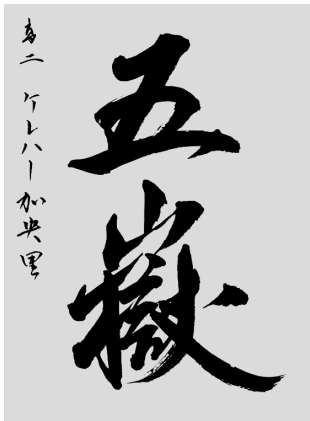 五嶽
高二 ケレハー加央里